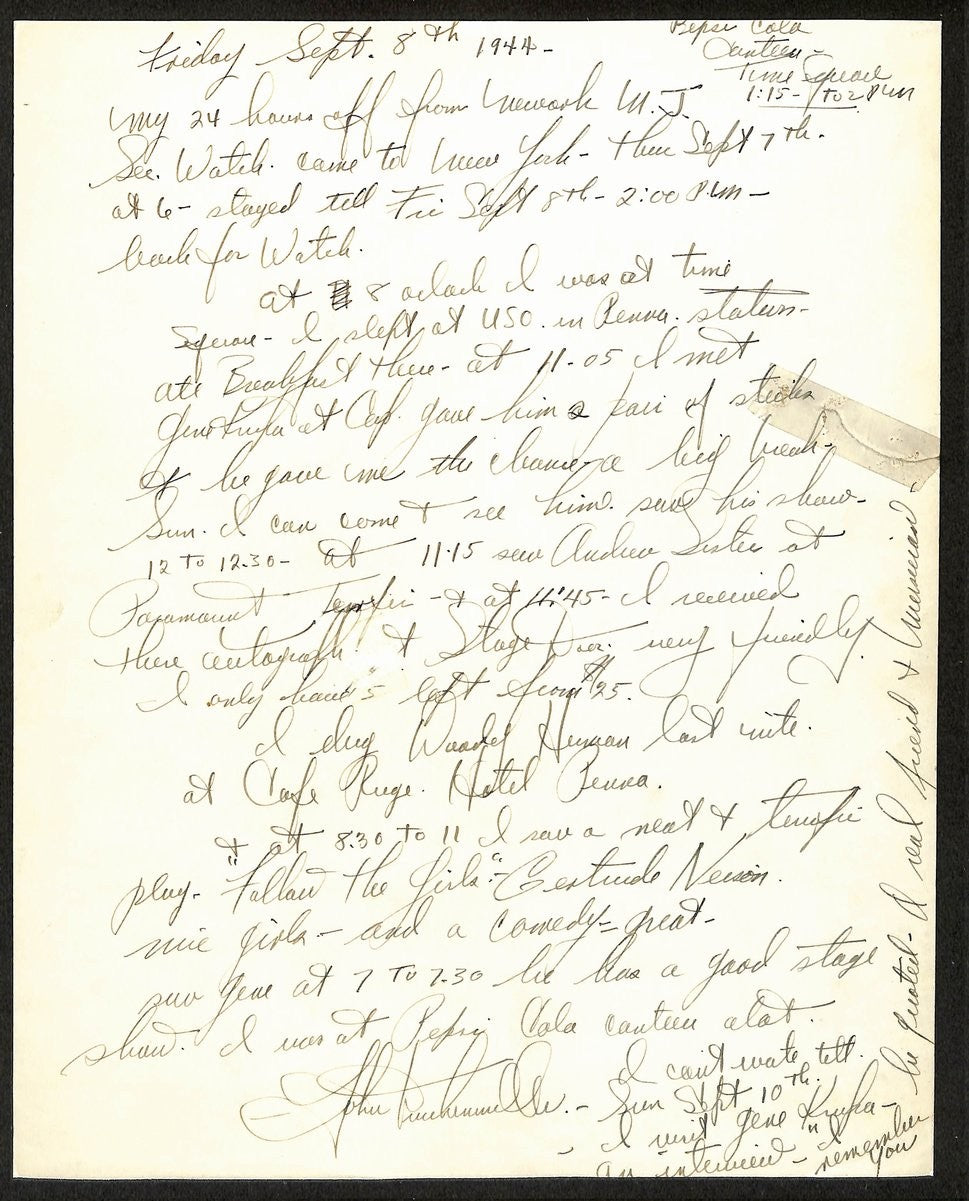 Friday Sept. 8th 1944-
Pepsi Cola
Canteen-
Time Square
1:15- to 2 P.M
My 24 hours off from Newark N.J.
Sec. Watch. came to New York- Thur Sept 7th.
at 6- stayed till Fri Sept 8th- 2:00 P.M-
back for Watch.
at 8 oclock I was at time
Square- I slept at USO. in Penna. station-
ate Breakfast there- at 11-05 I met
Gene Krupa at Cap. gave him a pair of sticks
& he gave me the chance- a big break-
Sun. I can come & see him. saw his show-
12 to 12.30- at 11.15 saw Andrew Sister at
Paramount Terrific - & at 11:45- I received
there autograph at Stage Door. very friendly.
I only have $5 left from $25.
I dug Woody Herman last nite.
at Cafe Ruge. Hotel Penna.
& at 8.30 to 11 I saw a neat & terrific
play- "Follow the Girls"- Gertrude
nice girls- and a comedy- great-
saw Gene at 7 to 7.30 he has a good stage
show. I was at Pepsi Cola canteen alot.
John
I cant wate till.
Sun Sept 10th.
I visit Gene Krupa-
An interview- "I
remember
You
he quoted- A real friend &